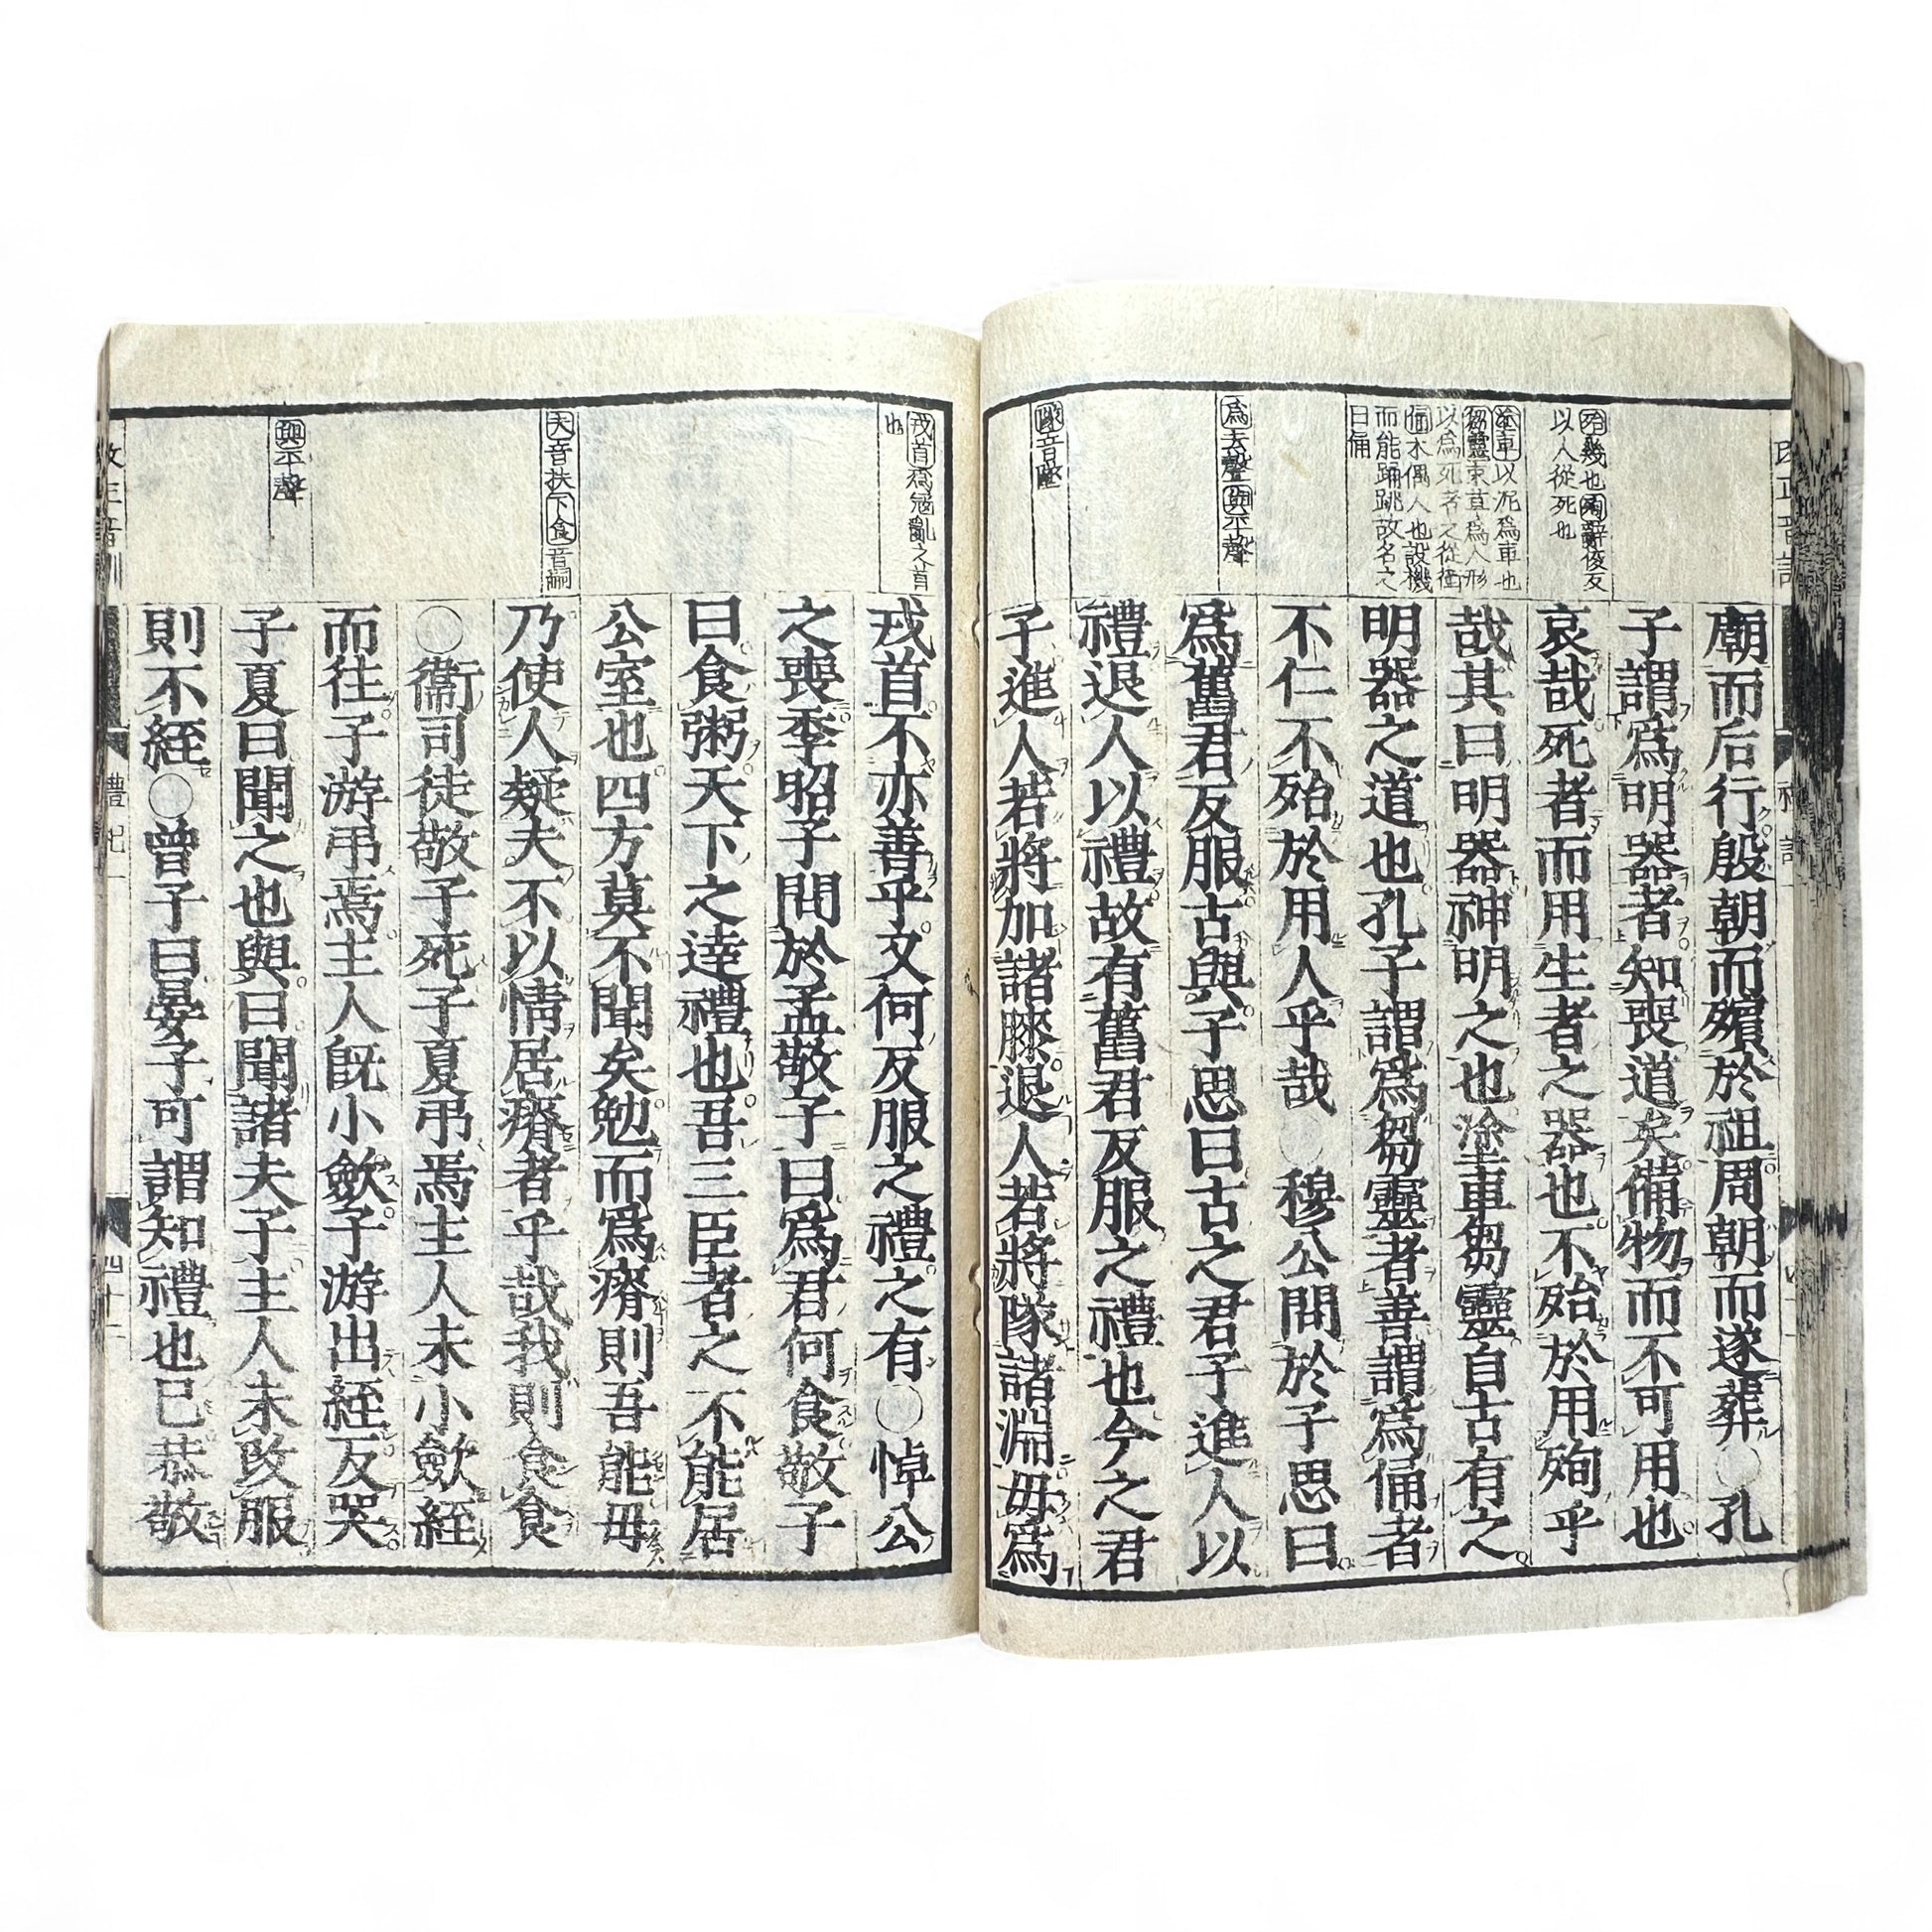 殆幾也殉辭俊反
以人從死也
塗車以泥爲車也
芻靈束草爲人形
以爲死者之從衞
俑木偶人也設機
而能踊跳故名之
曰俑
爲去聲與平聲
隊音墜
廟而后行殷朝而殯於祖周朝而遂葬○孔
子謂爲明器者知喪道矣備物而不可用也
哀哉死者而用生者之器也不殆於用殉乎
哉其曰明器神明之也塗車芻靈自古有之
明器之道也孔子謂爲芻靈者善謂爲俑者
不仁不殆於用人乎哉○穆公問於子思曰
爲舊君反服古與子思曰古之君子進人以
禮退人以禮故有舊君反服之禮也今之君
子進人若將加諸膝退人若將隊諸淵毋爲
戎首爲寇亂之首
也
夫音扶下食音嗣
與平聲
戎首不亦善乎又何反服之禮之有○悼公
之喪季昭子問於孟敬子曰爲君何食敬子
曰食粥天下之達禮也吾三臣者之不能居
公室也四方莫不聞矣勉而爲瘠則吾能毋
乃使人疑夫不以情居瘠者乎哉我則食食
○衞司徒敬子死子夏弔焉主人未小斂絰
而往子游弔焉主人旣小斂子游出絰反哭
子夏曰聞之也與曰聞諸夫子主人未改服
則不絰○曾子曰晏子可謂知禮也已恭敬
改正音訓
禮 七
四十二